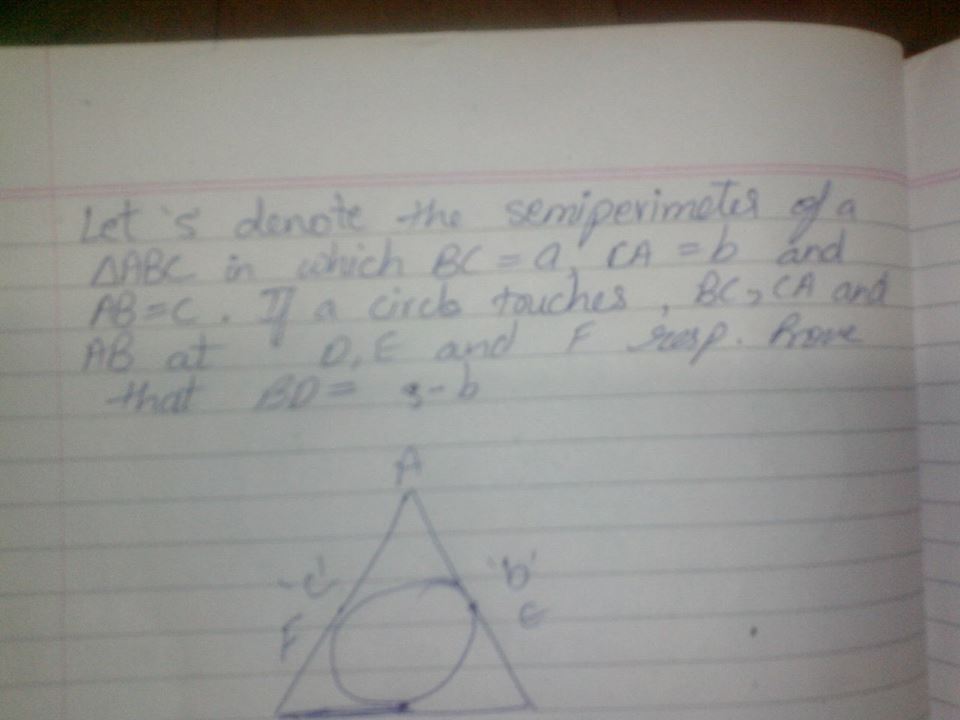 Let 's denote the semiperimeter of a
ΔABC in which BC = a, CA = b and
AB = c. If a circle touches, BC, CA and
AB at D, E and F resp. Prove
that BD = s-b
A
'c'
'b'
F
E